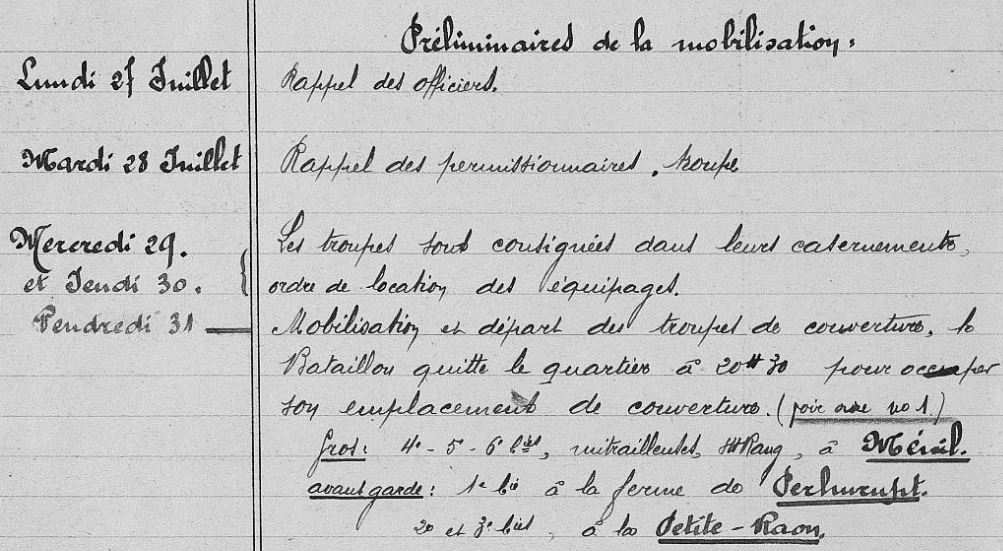 Préliminaires de la mobilisation.
Lundi 27 Juillet Rappel des officiers.
Mardi 28 Juillet Rappel des permissionnaires, troupe
Mercredi 29. Les troupes sont consignées dans leurs casernements,
et Jeudi 30. ordre de location des équipages.
Vendredi 31 Mobilisation et départ des troupes de couverture, le
Bataillon quitte le quartier à 20H30 pour occuper
son emplacement de couverture. (voir no 1.)
Gros: 4e - 5 - 6e Cies, mitrailleuses, à Ménil.
avant garde: 1e Cie à la ferme de Perhurupt.
2e et 3e Cies, à la Petite-Raon.